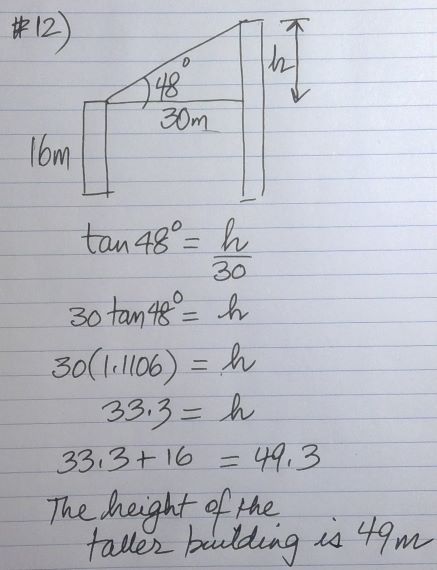 #12)
48°
h
30m
16m
tan 48° = h/30
30 tan 48° = h
30(1.1106) = h
33.3 = h
33.3 + 16 = 49.3
The height of the
taller building is 49m